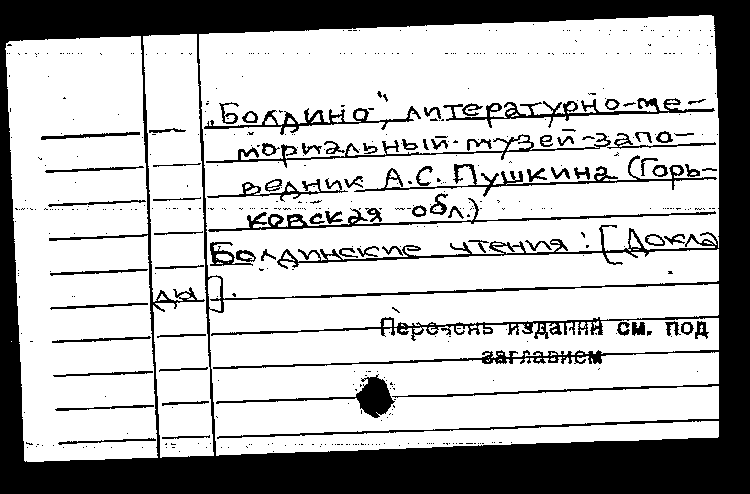 "Болдино", литературно-ме-
мориальный музей-запо-
ведник А.С. Пушкина (Горь-
ковская обл.)
Болдинские чтения: [Докла
ды].
Перечень изданий см. под
заглавием